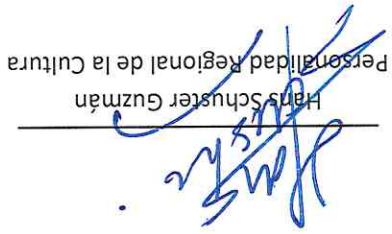 Hans Schuster Guzmán
Personalidad Regional de la Cultura